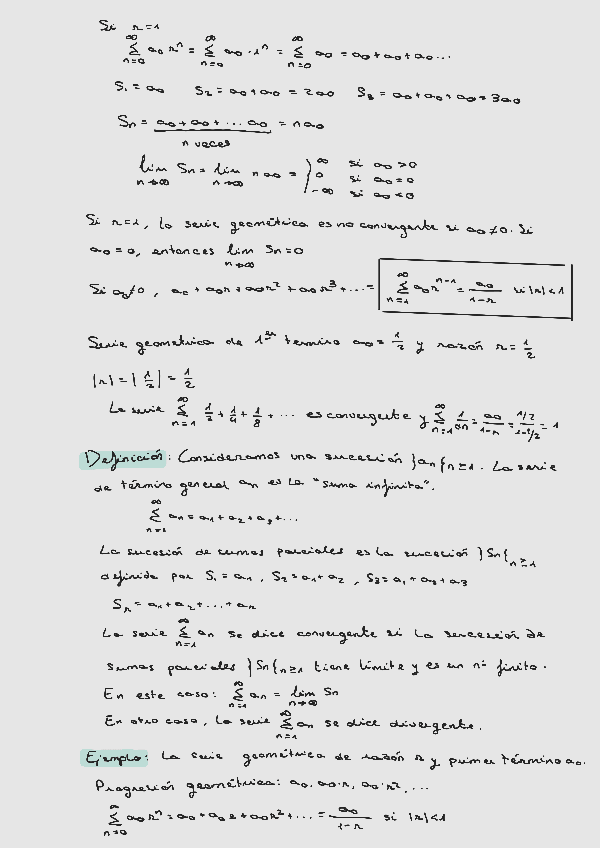 Si r=1
∞∑n=0 a₀rⁿ = ∞∑n=0 a₀·1ⁿ = ∞∑n=0 a₀ = a₀+a₀+a₀...
S₁ = a₀ S₂ = a₀+a₀ = 2a₀ S₃ = a₀+a₀+a₀ = 3a₀
Sn = a₀+a₀+...a₀ = na₀
n veces
lim n→∞ Sn = lim n→∞ na₀ = { ∞ si a₀>0
0 si a₀=0
-∞ si a₀<0
Si r=1, la serie geométrica es no convergente si a₀≠0. Si
a₀=0, entonces lim n→∞ Sn=0
Si a₀≠0, a₀+a₀r+a₀r²+a₀r³+...= ∞∑n=1 a₀rⁿ⁻¹ = a₀/1-r si |r|<1
Serie geometrica de 1er termino a₀=1/2 y razón r=1/2
|r|=|1/2|=1/2
La serie ∞∑n=1 1/2+1/4+1/8+... es convergente y ∞∑n=1 1/2n = a₀/1-r = 1/2/1-1/2 = 1
Definición: Consideramos una sucesión }an{n≥1. La serie
de término general an es la "suma infinita".
∞∑n=1 an=a₁+a₂+a₃+...
La sucesión de sumas parciales es la sucesión }Sn{n≥1
definida por S₁=a₁, S₂=a₁+a₂, S₃=a₁+a₂+a₃
Sn=a₁+a₂+...+an
La serie ∞∑n=1 an se dice convergente si la sucesión de
sumas parciales }Sn{n≥1 tiene límite y es un nº finito.
En este caso: ∞∑n=1 an = lim n→∞ Sn
En otro caso, la serie ∞∑n=1 an se dice divergente.
Ejemplo: La serie geométrica de razón r y primer término a₀.
Progresión geométrica: a₀, a₀·r, a₀·r², ...
∞∑n=0 a₀rⁿ=a₀+a₀r+a₀r²+...= a₀/1-r si |r|<1